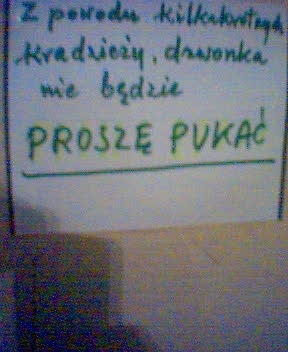 Z powodu kilkakrotnych
kradzieży, dzwonka
nie będzie
PROSZĘ PUKAĆ